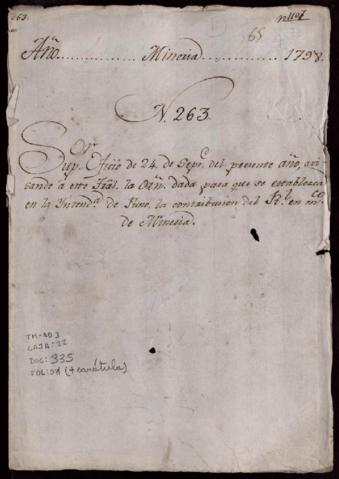 263.
65
Año................Mineria...............1798.
N. 263.
Sup. Oficio de 24. de Sepre. del presente año, avi-
sando à este Tral. la Orn. dada para que se establezca
en la Yntenda. de Puno, la contribucion del Rl. en mco.
de Mineria.
TM-AD3
CAJA: 22
DOC: 335
FOL: 01 (+ carátula)